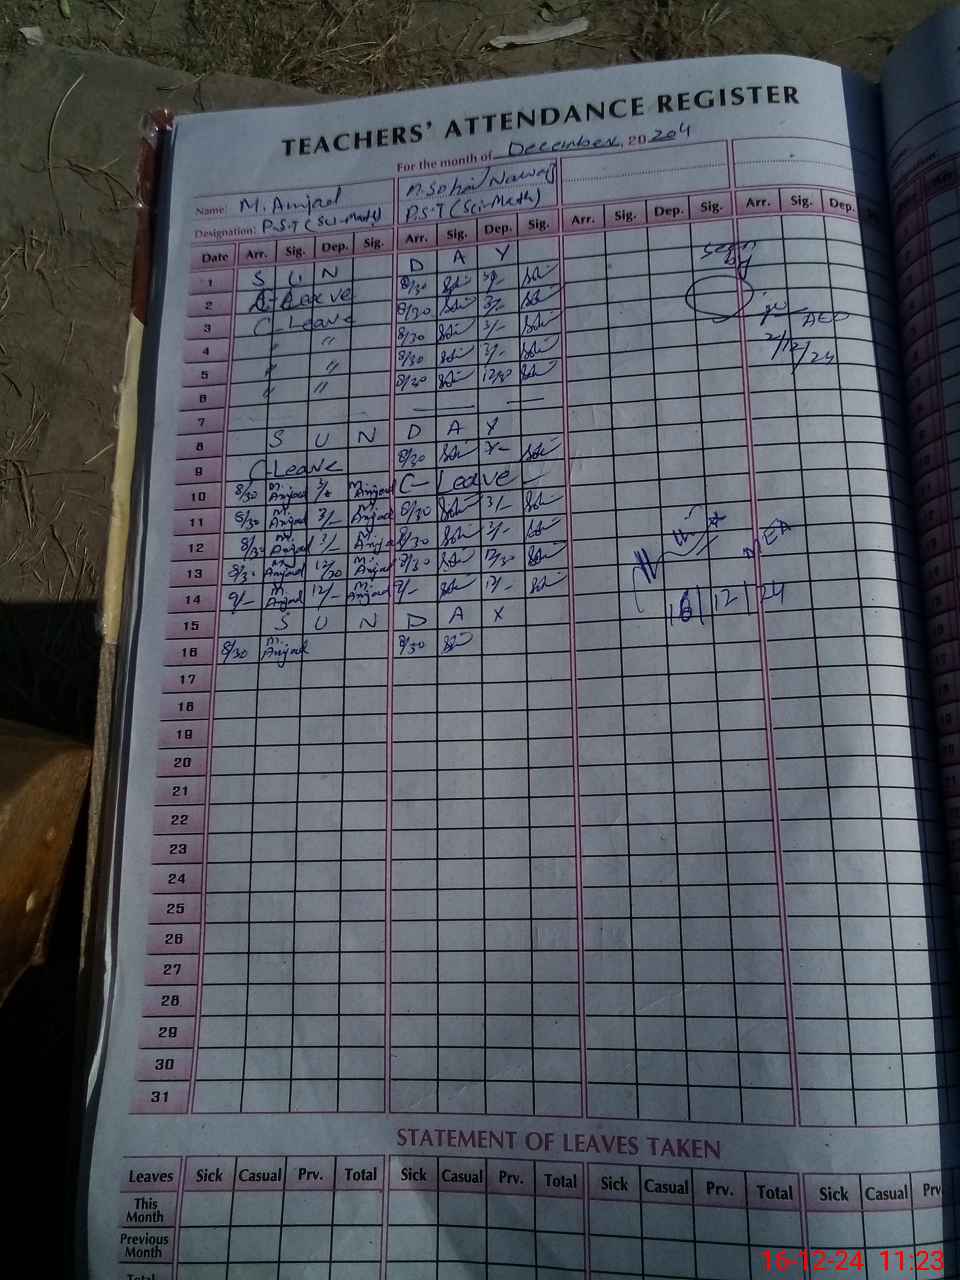 TEACHERS' ATTENDANCE REGISTER
For the month of December, 20 204
Name: M. Amjad M. Sohail Nawaz
Designation: P.S.T (Sci-Math) P.S.T (Sci-Math)
Date Arr. Sig. Dep. Sig. Arr. Sig. Dep. Sig. Arr. Sig. Dep. Sig. Arr. Sig. Dep.
1 S U N D A Y Seen by
2 C-Leave 8/30 3/-
3 C-Leave 8/30 3/- AEO
4 " " 8/30 3/- 2/12/24
5 " " 8/30 3/-
6 " " 8/30 12/30
7
8 S U N D A Y
9 C-Leave 8/30
10 8/30 M. Amjad 3/- M. Amjad C-Leave
11 8/30 M. Amjad 3/- M. Amjad 8/30 3/-
12 8/30 M. Amjad 3/- M. Amjad 8/30 3/- MEA
13 8/30 M. Amjad 12/30 M. Amjad 8/30 12/30
14 9/- M. Amjad 12/- M. Amjad 9/- 12/- 16/12/24
15 S U N D A Y
16 8/30 M. Amjad 8/30
17
18
19
20
21
22
23
24
25
26
27
28
29
30
31
STATEMENT OF LEAVES TAKEN
Leaves Sick Casual Prv. Total Sick Casual Prv. Total Sick Casual Prv. Total Sick Casual Prv
This Month
Previous Month
Total
16-12-24 11:23